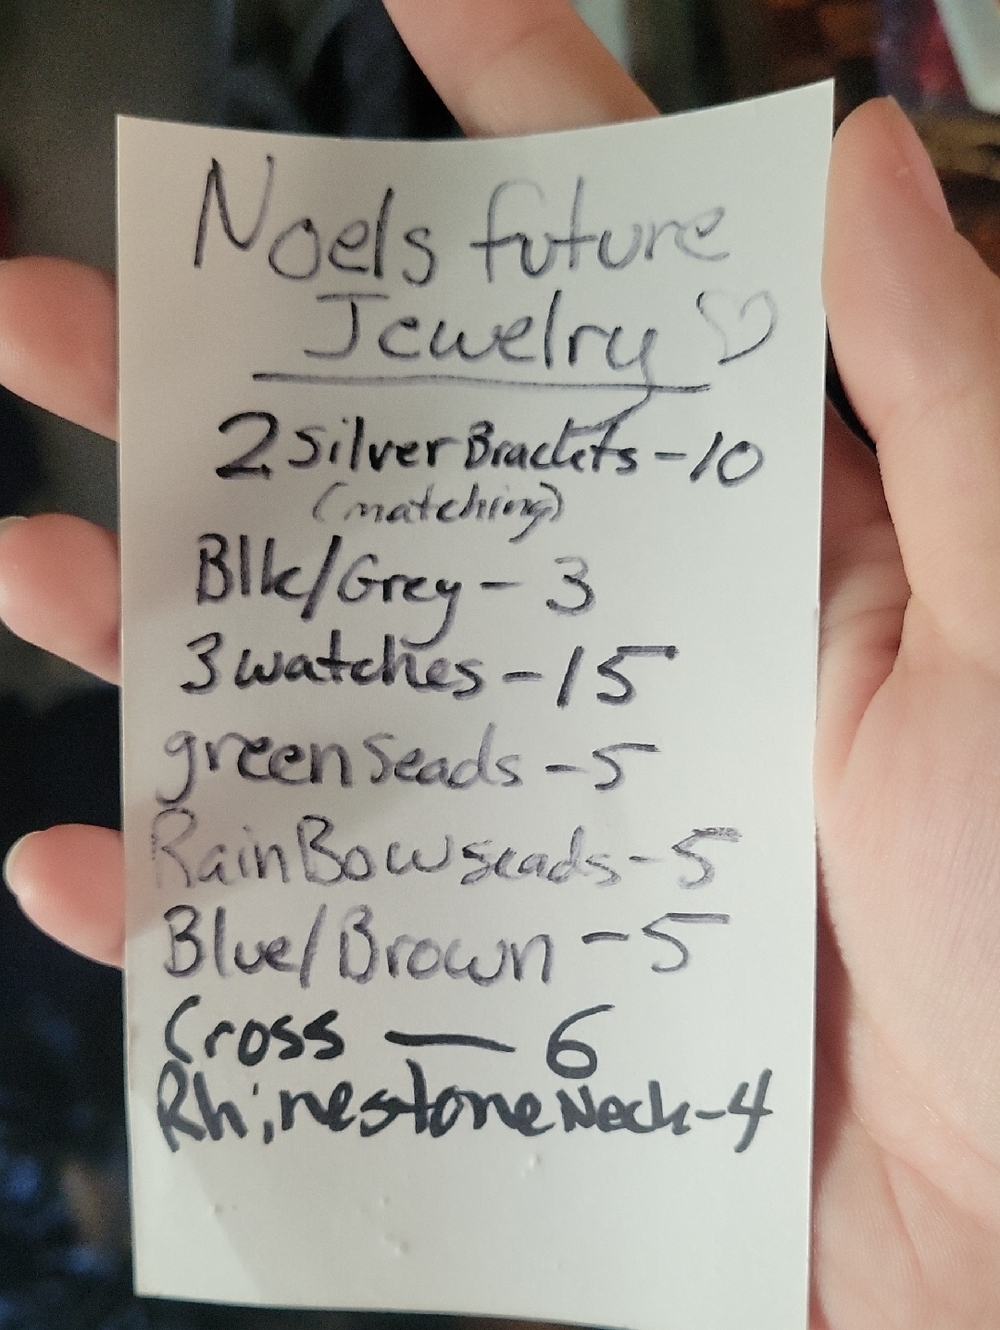 Noels future
Jewelry ♡
2 Silver Brackets - 10
(matching)
Blk/Grey - 3
3 watches - 15
green seads - 5
RainBow seads - 5
Blue/Brown - 5
Cross — 6
Rhinestone Neck - 4